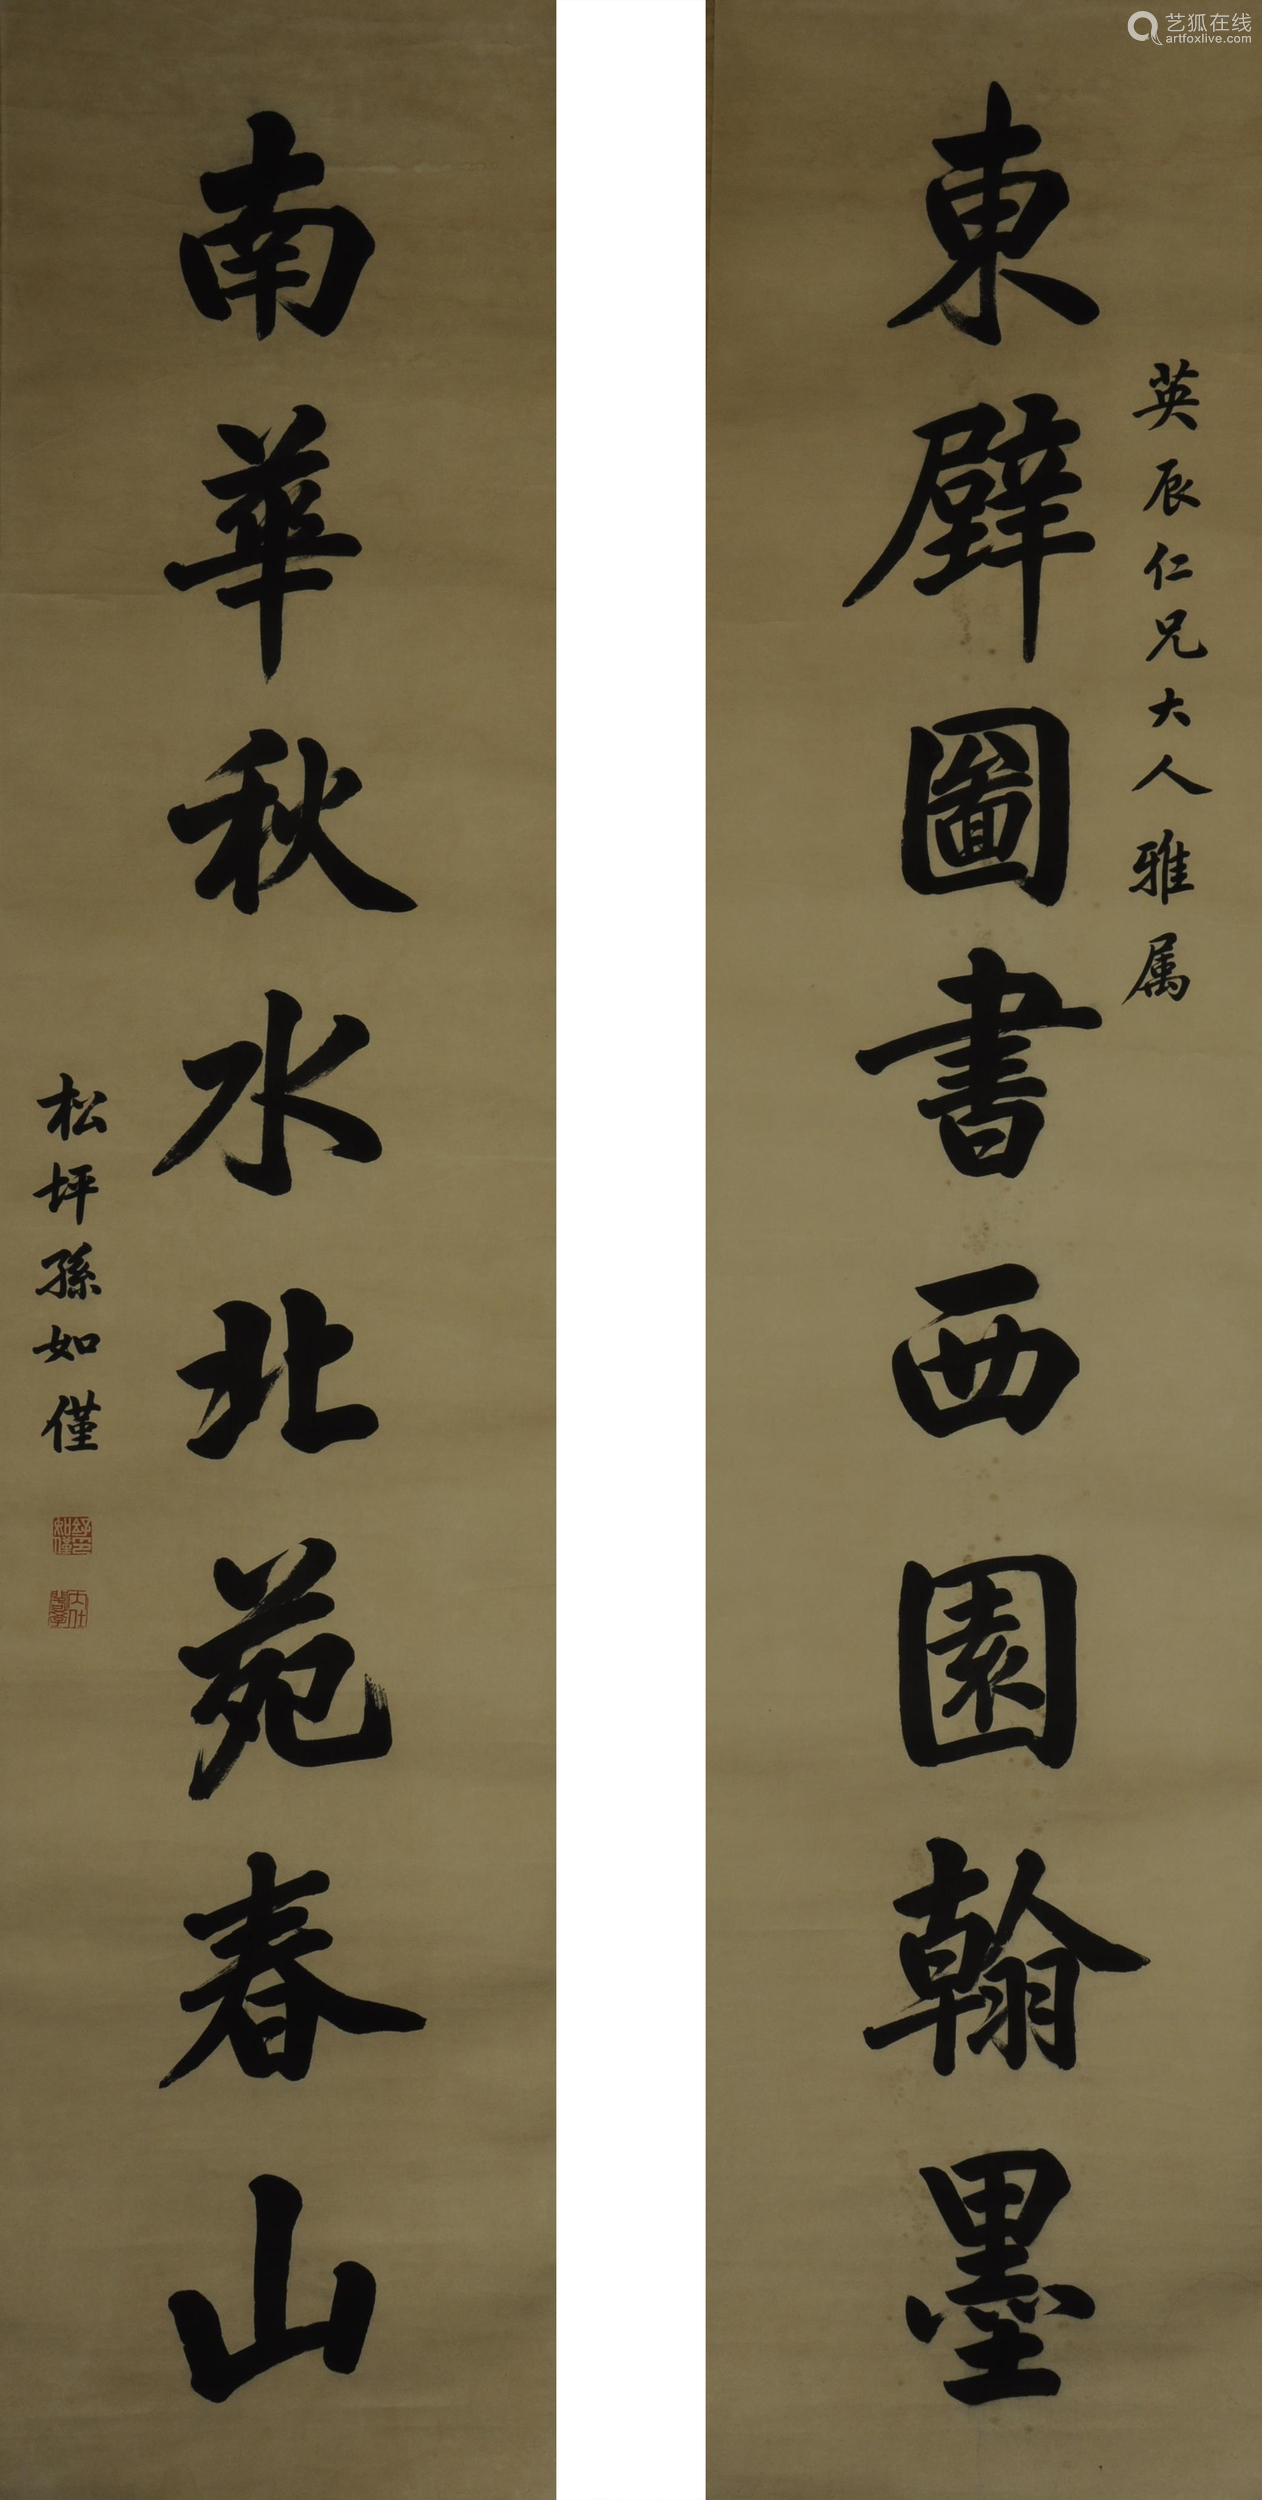 艺狐在线
artfoxlive.com
英辰仁兄大人雅属
東壁圖書西園翰墨
南華秋水北苑春山
松坪孫如僅